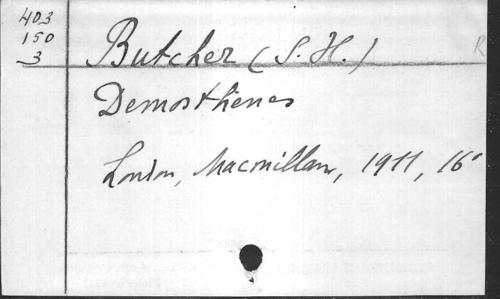 403
150
3
Butcher (S. H.)
R
Demosthenes
London, Macmillan, 1911, 16°